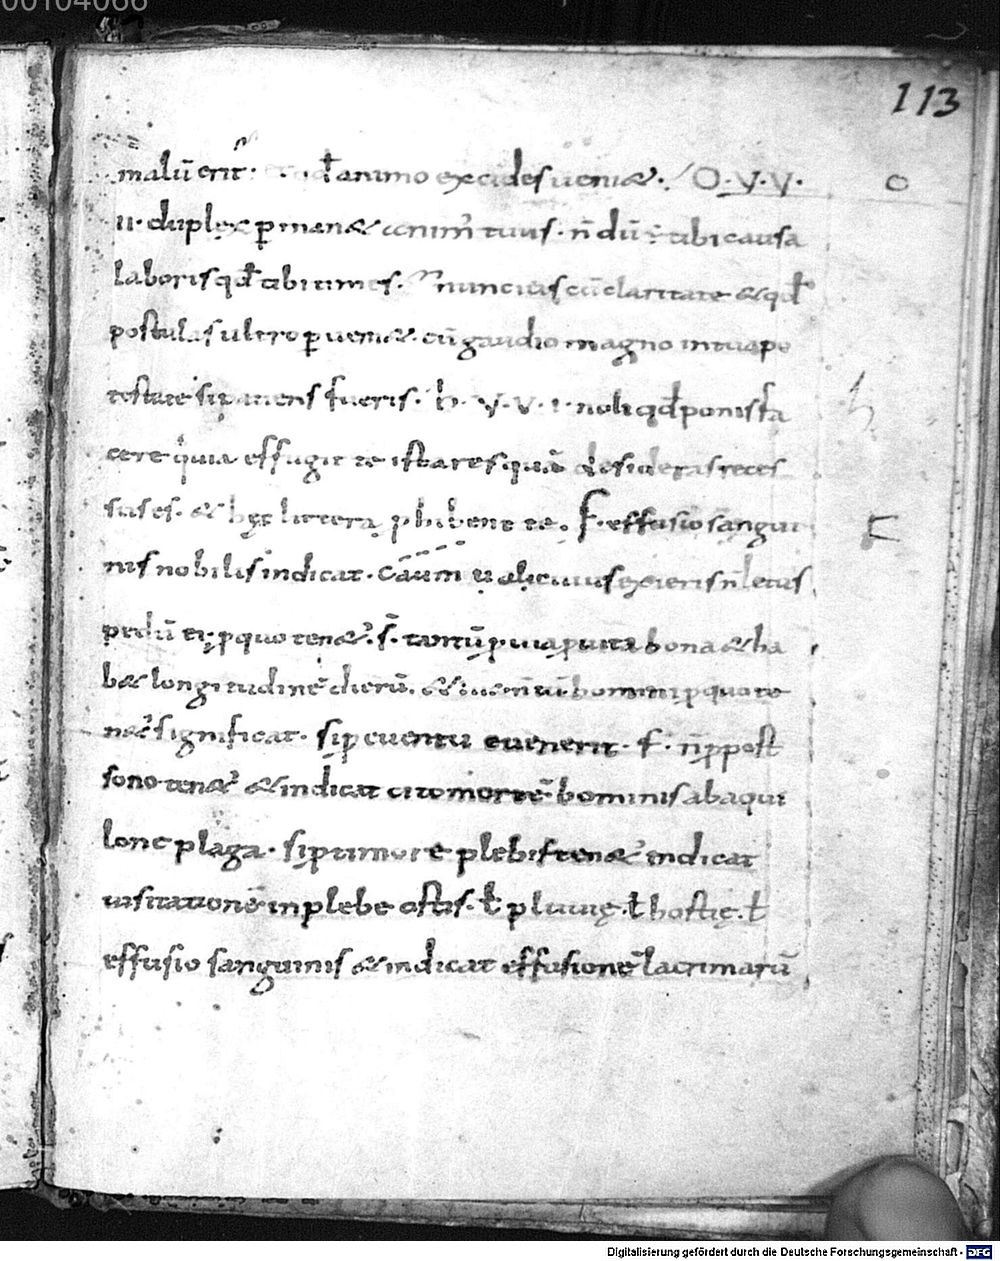 00104066
113
malū erit. ł animo excides ueni&. O. V. V.
o
u. duplex ꝑman& animꝰ tuus. n̄ dū tibi causa
laboris qđ tibi times. nuncius cū claritate & qđ
postulas ultro ꝑueni&. cū gaudio magno in tua po
testate si paciens fueris. h. V. V. 1. noli qđ ponis fa
h
cere quia effugit te ista res quā desideras reces
sus es. & hęc littera ꝓhibent te. F. effusio sangui
F
nis nobilis indicat. alicuius exieris n̄ letus
ꝑ quo ten&. s̄. tantū ꝑ uia ꝑ uita bona & ha
b& longitudinē dierū. & hominū ꝑ quo te
n& significat. si ꝑ euentu euenerit. f. post
sono ten& & indicat cito mortē hominis ab aqui
lone plaga. si ꝑ timore plebis ten& indicat
uisitationē in plebe ostis. ł pluuię. ł hostię. ł
effusio sanguinis & indicat effusionē lacrimarū
Digitalisierung gefördert durch die Deutsche Forschungsgemeinschaft - DFG